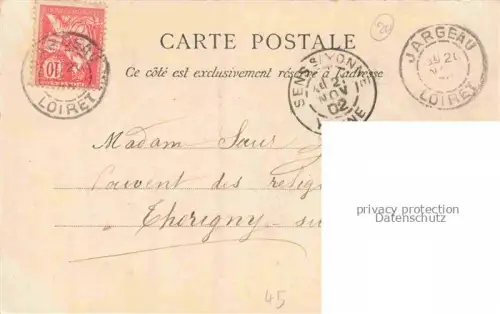 CARTE POSTALE
Ce côté est exclusivement réservé à l'adresse
10
LOIRET
SENS S/YONNE
21
NOV
02
JARGEAU
LOIRET
Madam
Couvent des relig
Thorigny - su
privacy protection
Datenschutz
45